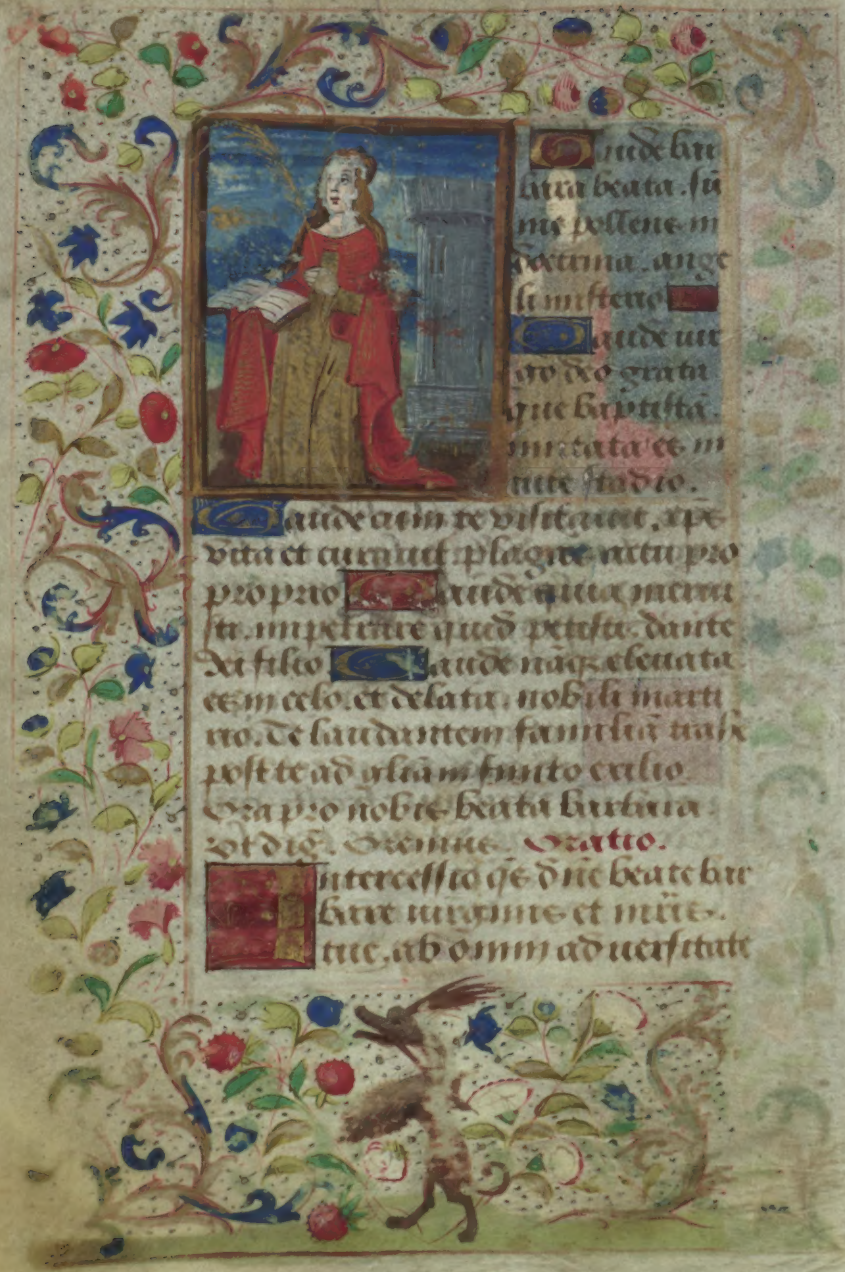 Gaude bar
bara beata. sū
me pollens in
doctrina. ange
li misterio
Gaude vir
go deo grata
que baptistā.
imitata es in
stadio.
Gaude cum te visitavit. xp̄s
vita et curavit plagas actu pro
proprio Gaude quia merui
sti. impetrare quod petisti. dante
dei filio Gaude nāq̄ elevata
es in celo. et delata. nobili marti
rio. Te laudantem familiā
post te ad gl̄iam finito exilio.
Ora pro nobis beata barbara
Vt dig̃. Oremus. Oratio.
Intercessio q̄s dn̄e beate bar
bare virginis et mr̄is.
tue. ab omni adversitate